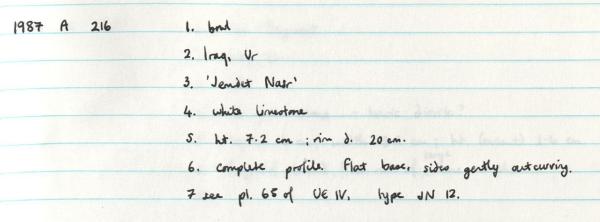 1987 A 216 1. bowl
2. Iraq, Ur
3. 'Jemdet Nasr'
4. white limestone
5. ht. 7.2 cm ; rim d. 20 cm.
6. complete profile. Flat base, sides gently outcurving.
7 see pl. 65 of UE IV, type JN 12.